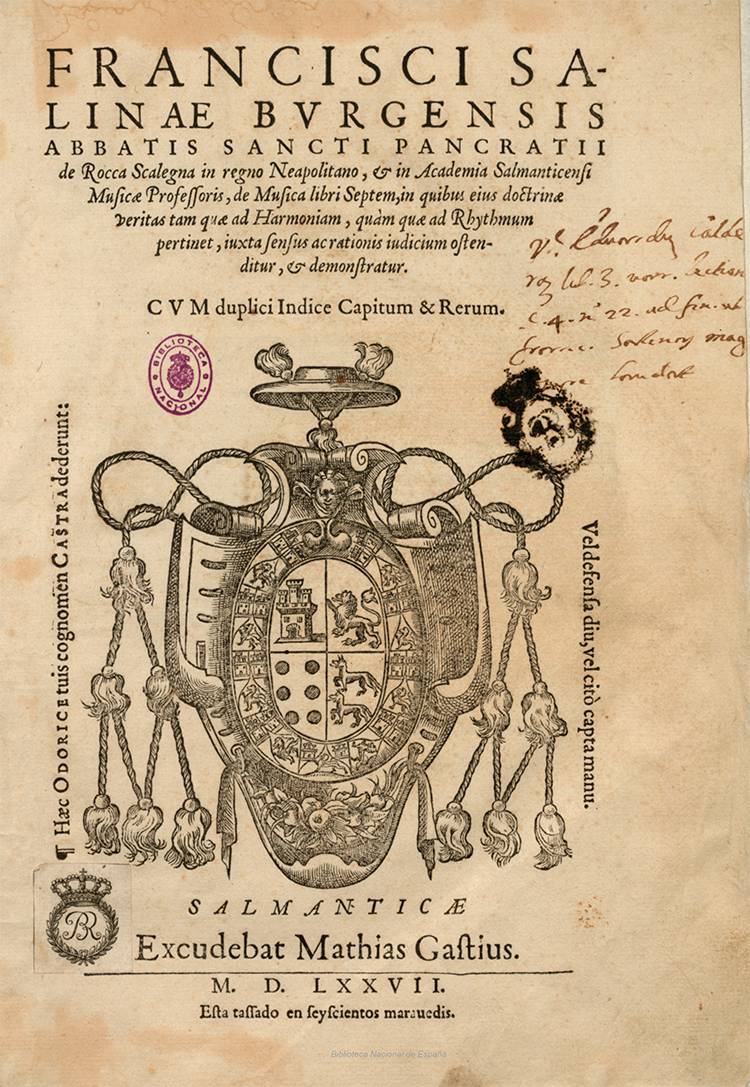 FRANCISCI SA-
LINAE BVRGENSIS
ABBATIS SANCTI PANCRATII
de Rocca Scalegna in regno Neapolitano, & in Academia Salmanticensi
Musicæ Professoris, de Musica libri Septem, in quibus eius doctrinæ
veritas tam quæ ad Harmoniam, quàm quæ ad Rhythmum
pertinet, iuxta sensus ac rationis iudicium osten-
ditur, & demonstratur.
CVM duplici Indice Capitum & Rerum.
lib. 3. var.
C. 4. nº 22. ad fin.
BIBLIOTECA NACIONAL
¶ Hæc ODORICE tuis cognomen CASTRA dederunt:
Vel defensa diu, vel citò capta manu.
BR
SALMANTICÆ
Excudebat Mathias Gastius.
M. D. LXXVII.
Esta tassado en seyscientos marauedis.
Biblioteca Nacional de España